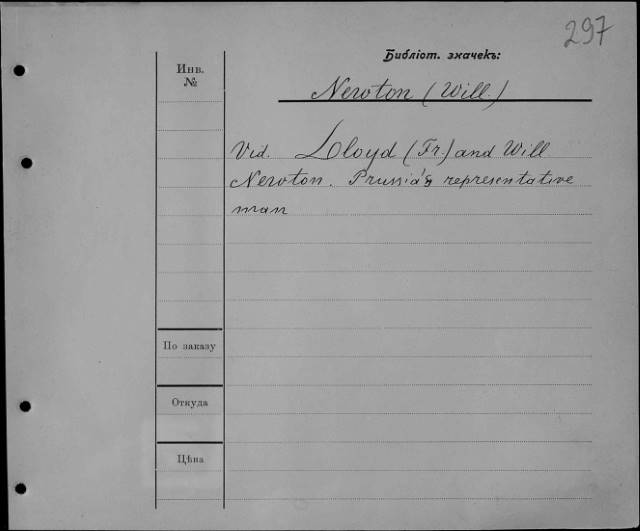 297
Библіот. значекъ:
Инв.
№
Newton (Will)
Vid. Lloyd (Fr.) and Will
Newton. Prussia's representative
man
По заказу
Откуда
Цѣна